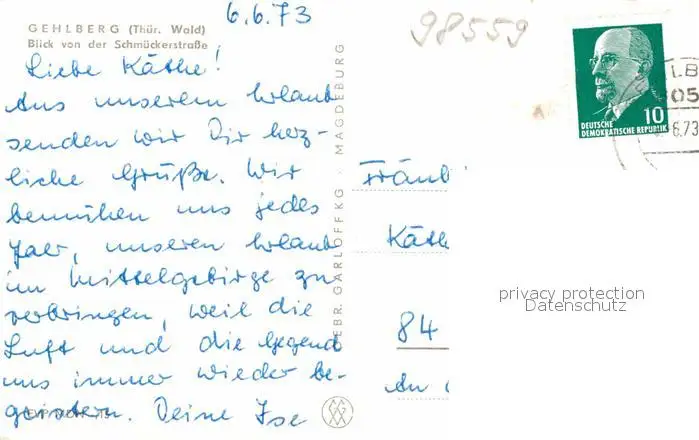 6.6.73
98559
GEHLBERG (Thür. Wald)
Blick von der Schmückerstraße
Liebe Käthe!
Aus unserem Urlaub
senden wir Dir herz-
liche Grüße. Wir
bemühen uns jedes
Jaer, unseren Urlaub
im Mittelgebirge zu
verbringen, weil die
Luft und die Gegend
uns immer wieder be-
geistern. Deine Ise
GEBR. GARLOFF KG · MAGDEBURG
10
DEUTSCHE
DEMOKRATISCHE REPUBLIK
LB
805
6.73
Fräul
Käth
84
An
privacy protection
Datenschutz